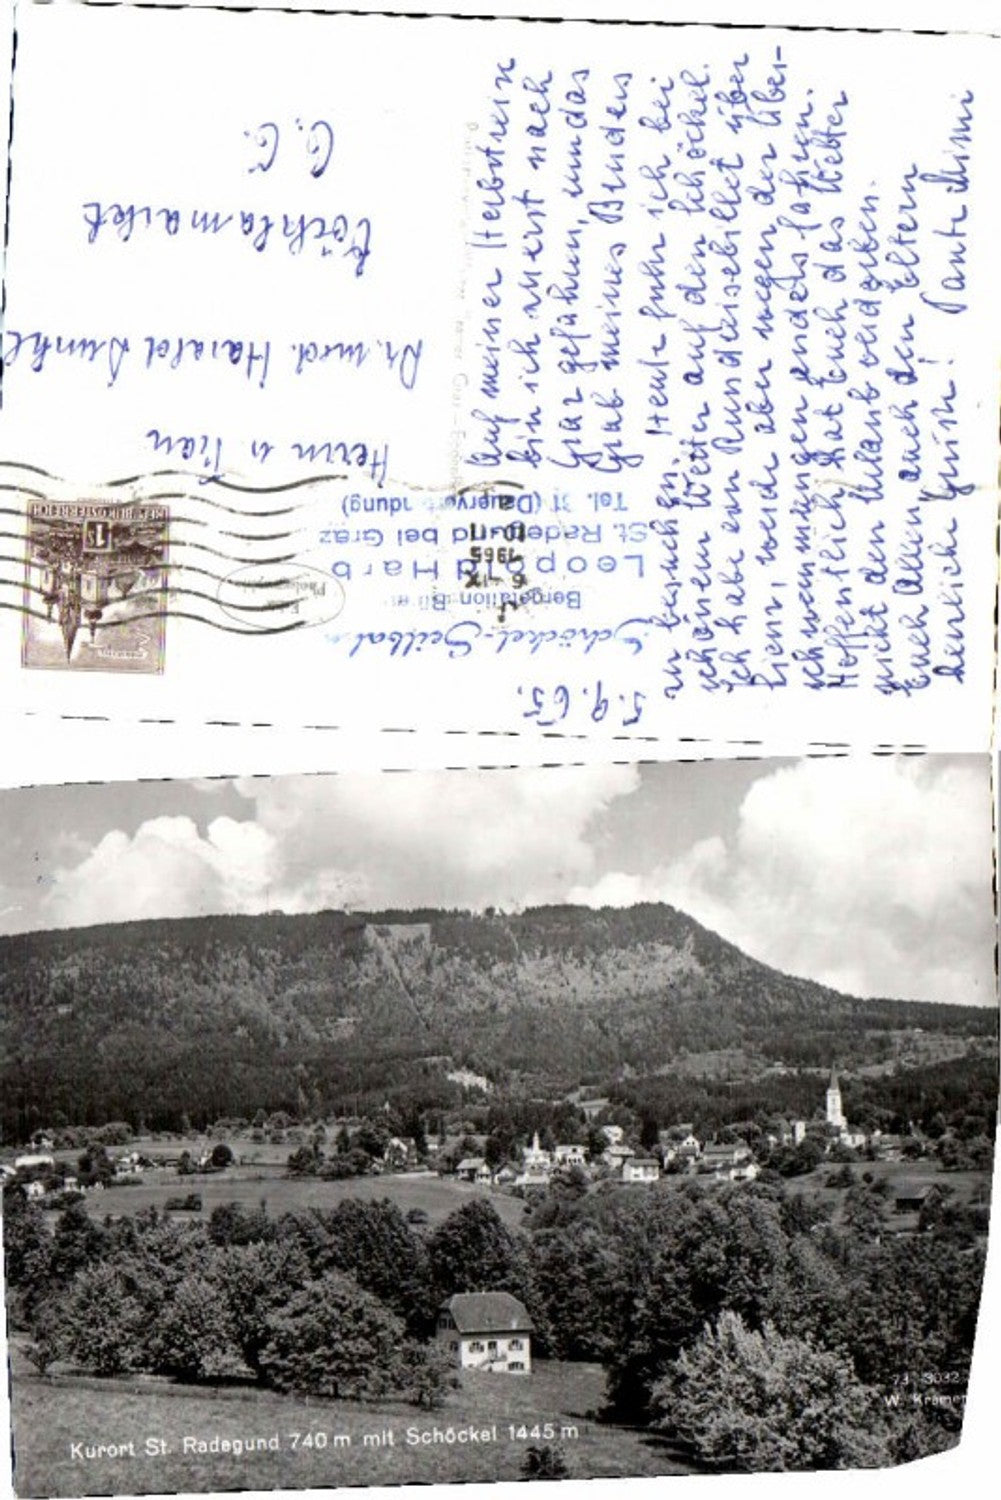 5.9.65.
Schöckel-Seilbahn
Bergstation
Leopold Harb
St. Radegund bei Graz
Tel. 31 (Dauerverbindung)
REPUBLIK ÖSTERREICH
1 S
6.-IX
1965
Herrn u. Frau
Dr. med. Harald Dunkl
Vöcklamarkt
O.Ö.
Auf meiner Herbstreise
bin ich zuerst nach
Graz gefahren, um das
Grab meines Bruders
zu besuchen. Heute fuhr ich bei
schönem Wetter auf den Schöckel.
Ich habe ein Rundreisebillet über
Lienz, werde aber wegen der Über-
schwemmungen anders fahren.
Hoffentlich hat Euch das Wetter
nicht den Urlaub verdorben.
Euch Allen, auch den Eltern
herzliche Grüße! Tante Mimi
73 3032
W. Kramer
Kurort St. Radegund 740 m mit Schöckel 1445 m